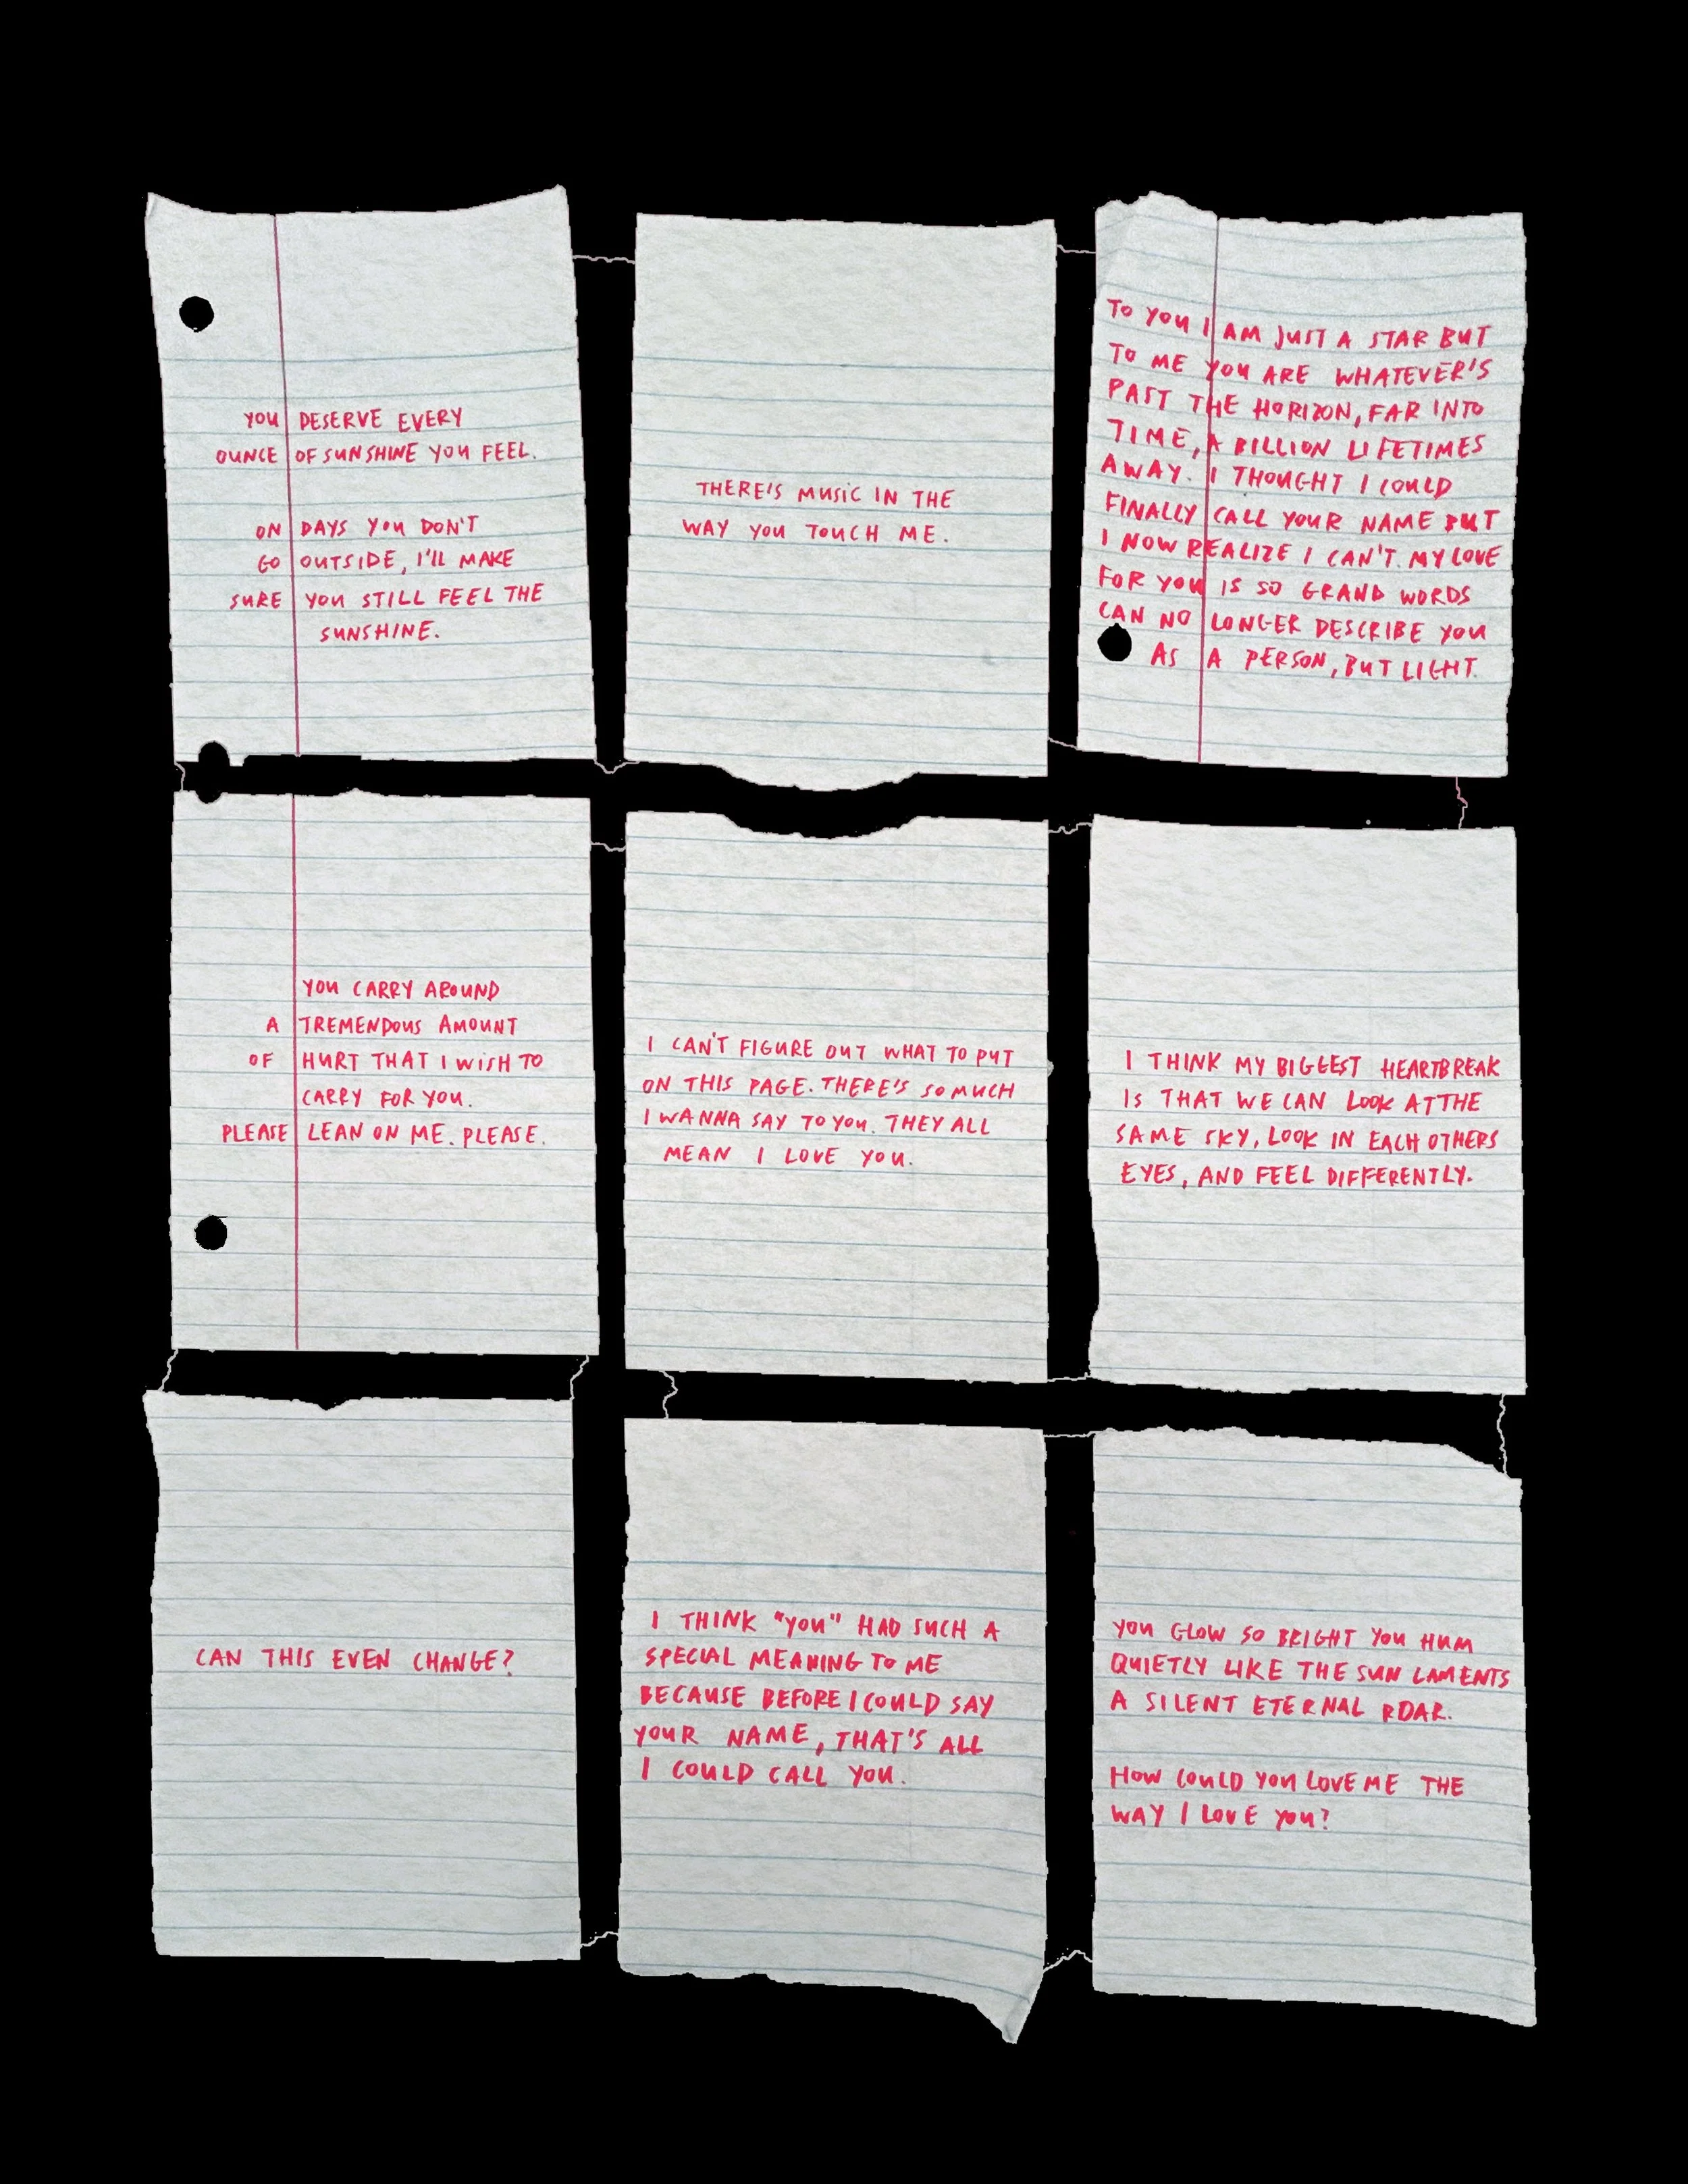 YOU DESERVE EVERY
OUNCE OF SUNSHINE YOU FEEL.
ON DAYS YOU DON'T
GO OUTSIDE, I'LL MAKE
SURE YOU STILL FEEL THE
SUNSHINE.
THERE'S MUSIC IN THE
WAY YOU TOUCH ME.
TO YOU I AM JUST A STAR BUT
TO ME YOU ARE WHATEVER'S
PAST THE HORIZON, FAR INTO
TIME, A BILLION LIFETIMES
AWAY. I THOUGHT I COULD
FINALLY CALL YOUR NAME BUT
I NOW REALIZE I CAN'T. MY LOVE
FOR YOU IS SO GRAND WORDS
CAN NO LONGER DESCRIBE YOU
AS A PERSON, BUT LIGHT.
YOU CARRY AROUND
A TREMENDOUS AMOUNT
OF HURT THAT I WISH TO
CARRY FOR YOU.
PLEASE LEAN ON ME. PLEASE.
I CAN'T FIGURE OUT WHAT TO PUT
ON THIS PAGE. THERE'S SO MUCH
I WANNA SAY TO YOU. THEY ALL
MEAN I LOVE YOU.
I THINK MY BIGGEST HEARTBREAK
IS THAT WE CAN LOOK AT THE
SAME SKY, LOOK IN EACH OTHERS
EYES, AND FEEL DIFFERENTLY.
CAN THIS EVEN CHANGE?
I THINK "YOU" HAD SUCH A
SPECIAL MEANING TO ME
BECAUSE BEFORE I COULD SAY
YOUR NAME, THAT'S ALL
I COULD CALL YOU.
YOU GLOW SO BRIGHT YOU HUM
QUIETLY LIKE THE SUN LAMENTS
A SILENT ETERNAL ROAR.
HOW COULD YOU LOVE ME THE
WAY I LOVE YOU?